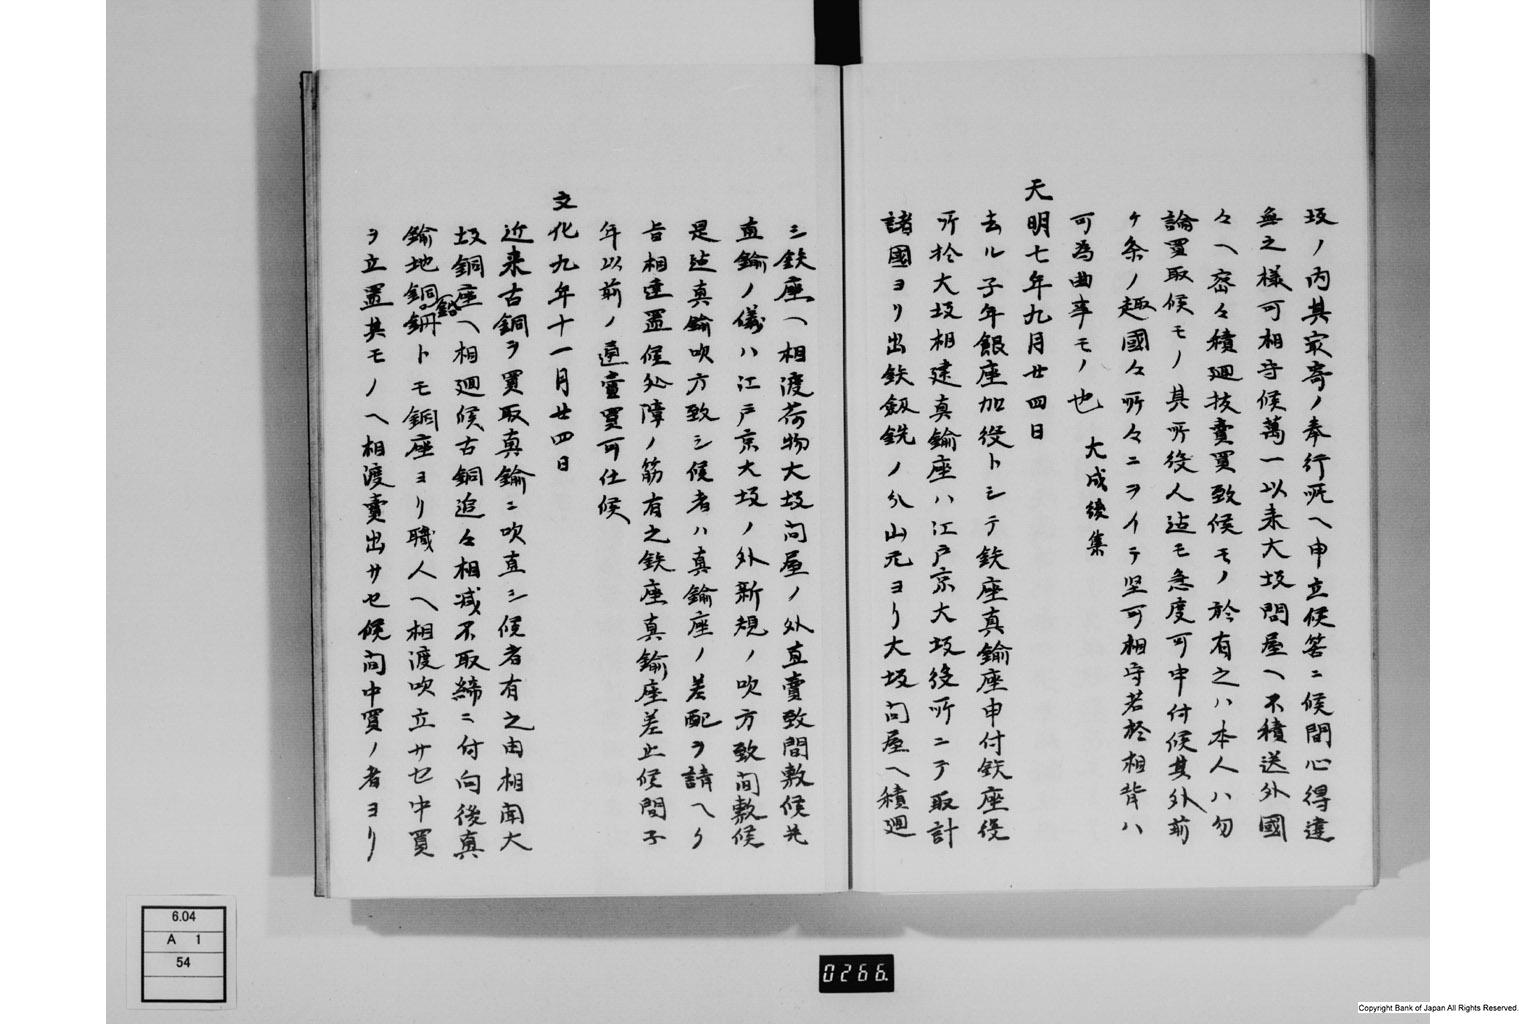 坂ノ内其最寄ノ奉行所ヘ申立候筈ニ候間心得違
無之様可相守候萬一以来大坂問屋ヘ不積送外國
々ヘ密々積廻抜賣買致候モノ於有之ハ本人ハ勿
論買取候モノ其所役人迄モ急度可申付候其外前
ケ条ノ趣國々所々ニヲイテ堅可相守若於相背ハ
可為曲事モノ也 大成後集
天明七年九月廿四日
去ル子年銀座加役トシテ鉄座真鍮座申付鉄座役
所於大坂相建真鍮座ハ江戸京大坂役所ニテ取計
諸國ヨリ出鉄釼銑ノ分山元ヨリ大坂問屋ヘ積廻
シ鉄座ヘ相渡荷物大坂問屋ノ外直賣致間敷候先
直鍮ノ儀ハ江戸京大坂ノ外新規ノ吹方致間敷候
是迄真鍮吹方致シ候者ハ真鍮座ノ差配ヲ請ヘク
旨相達置候処障ノ筋有之鉄座真鍮座差止候間子
年以前ノ通賣買可仕候
文化九年十一月廿四日
近来古銅ヲ買取真鍮ニ吹直シ候者有之由相聞大
坂銅座ヘ相廻候古銅追々相减不取締ニ付向後真
鍮地銅鉛トモ銅座ヨリ職人ヘ相渡吹立サセ中買
ヲ立置其モノヘ相渡賣出サセ候間中買ノ者ヨリ
6.04
A 1
54
0266.
Copyright Bank of Japan All Rights Reserved.